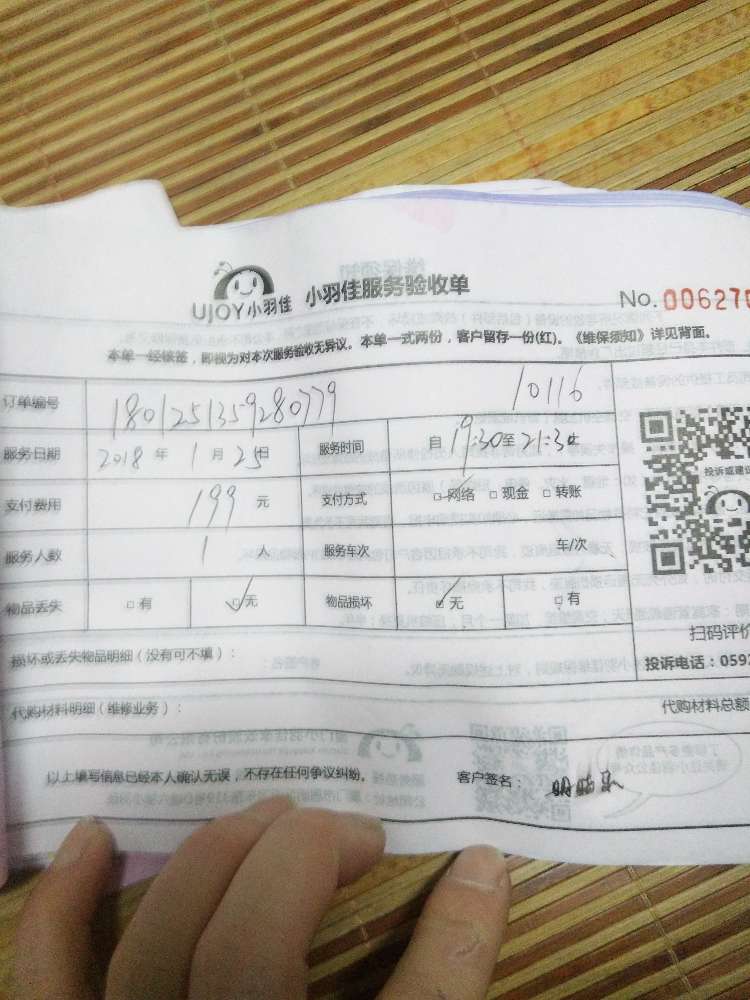 UJOY小羽佳 小羽佳服务验收单 No.006270
本单一经核签，即视为对本次服务验收无异议。本单一式两份，客户留存一份(红)。《维保须知》详见背面。
订单编号 1801251359280779 10116
服务日期 2018 年 1 月 25日 服务时间 自 19:30至 21:30止
支付费用 199 元 支付方式 □网络 □现金 □转账
投诉或建议
服务人数 1 人 服务车次 车/次
物品丢失 □有 ☑无 物品损坏 ☑无 □有
扫码评价
损坏或丢失物品明细（没有可不填）：
投诉电话：059
代购材料明细（维修业务）： 代购材料总额
以上填写信息已经本人确认无误，不存在任何争议纠纷。 客户签名：